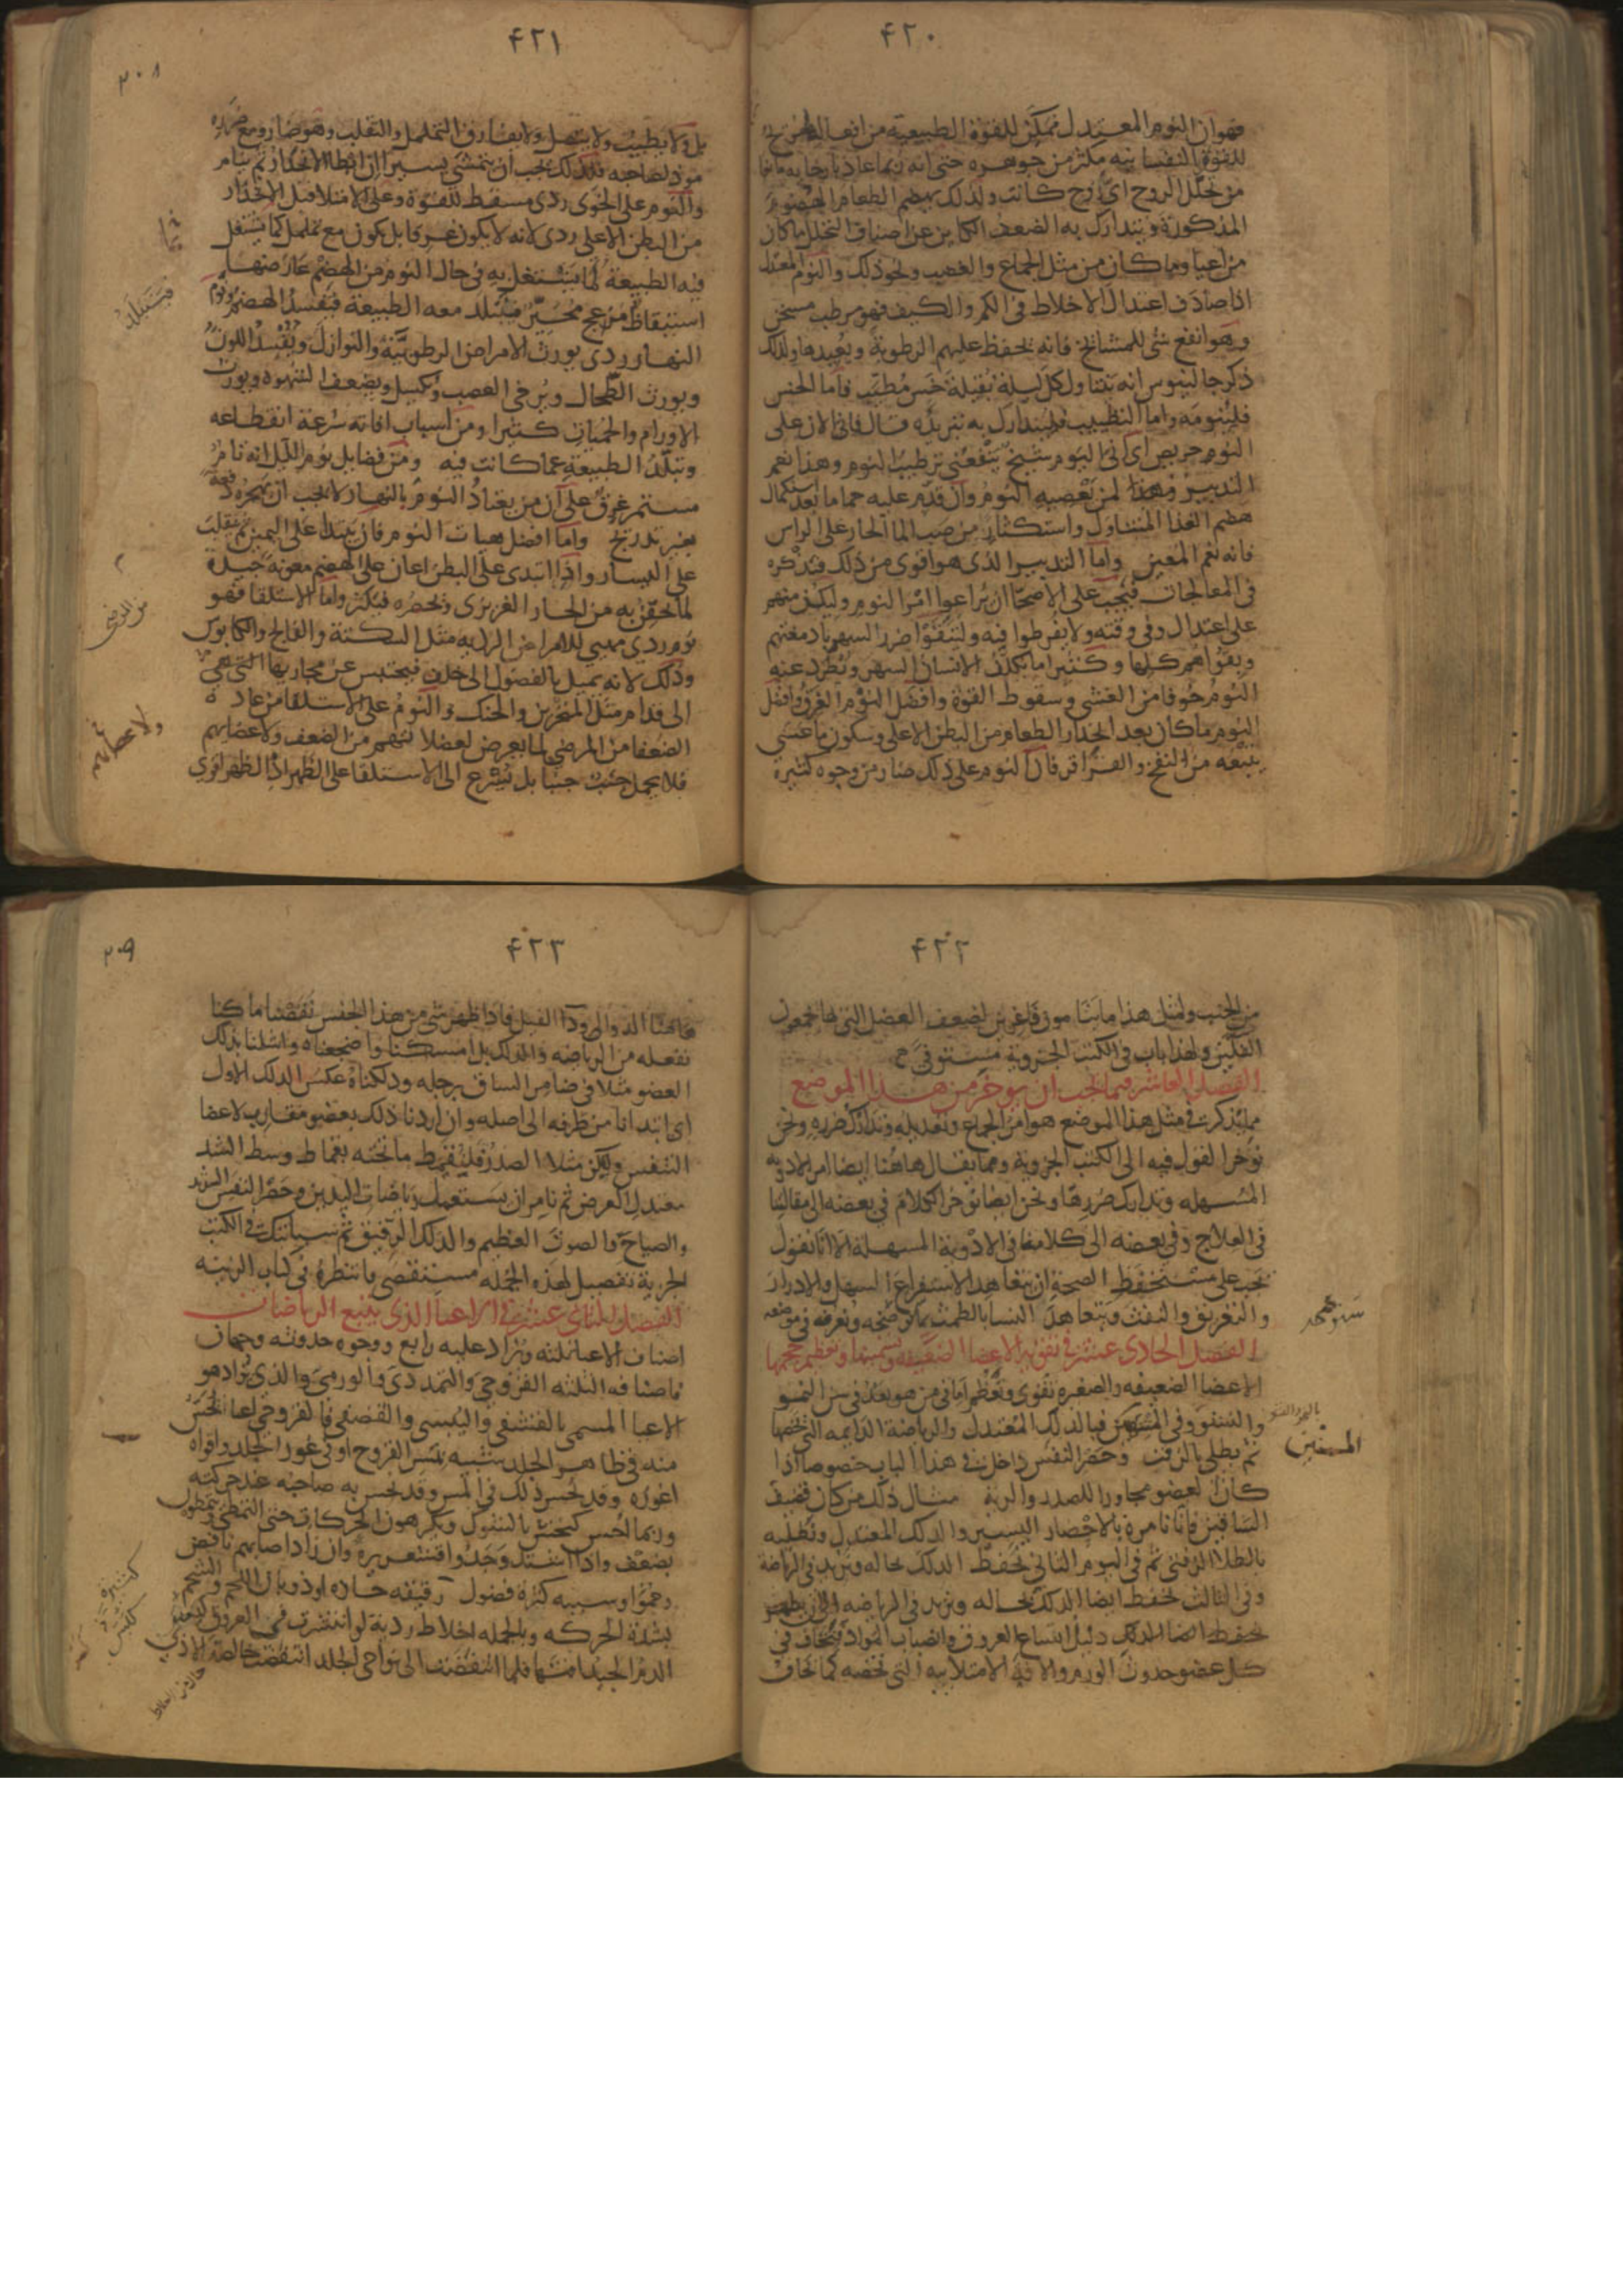 ۴۲۰
فهو ان النوم المعتدل ممكن للقوة الطبيعية من افعالها مريح
للقوة النفسانيه مكثر من جوهره حتى انه ربما عاد بارخايه مانعا
من تحلل الروح اى روح كانت ولذلك يهضم الطعام الهضوم
المذكورة ويتدارك به الضعف الكاين عن اصناف التحلل ما كان
من اعيا وما كان من مثل الجماع والغضب ونحو ذلك والنوم المعتدل
اذا صادف اعتدال الاخلاط فى الكم والكيف فهو مرطب مسخن
وهو انفع شى للمشائخ فانه يحفظ عليهم الرطوبة ويعيدها ولذلك
ذكر جالينوس انه يتناول كل ليلة بقيلة خس مطيب فاما الخس
فلينومه واما التطييب فليتدارك به تبريده قال فانى الان على
النوم حريص اى انى اليوم شيخ ينفعنى ترطيب النوم وهذا نعم
التدبير لمن يعصيه النوم وان قدم عليه حماما بعد استكمال
هضم الغذا المتناول واستكثار من صب الما الحار على الراس
فانه نعم المعين واما التدبير الذى هو اقوى من ذلك فنذكره
فى المعالجات فيجب على الاصحا ان يراعوا امر النوم وليكن منهم
على اعتدال وفى وقته ولا يفرطوا فيه وليتقوا ضرر السهر بادمغتهم
وبقواهم كلها وكثيرا ما يكلف الانسان السهر ويطرد عنه
النوم خوفا من الغشى وسقوط القوة وافضل النوم الغرق وافضل
النوم ما كان بعد انحدار الطعام من البطن الاعلى وسكون ما عسى
يتبعه من النفخ والقراقر فان النوم على ذلك ضار من وجوه كثيرة
۴۲۱
۲۰۸
بل ولا يطيب ولا يتصل ولا يفارق التململ والتقلب وهو ضار ومع ضرره
موذ لصاحبه فلذلك يجب ان يتمشى يسيرا ان ابطا الانحدار ثم ينام
والنوم على الخوى ردى مسقط للقوة وعلى الامتلا قبل الانحدار
من البطن الاعلى ردى لانه لا يكون غرقا بل يكون مع تململ كما تشتغل
فيه الطبيعة لما يشتغل به فى حال النوم من الهضم عارضها
استيقاظ مزعج محير فيتبلد معه الطبيعة فيفسد الهضم ونوم
النهار ردى يورث الامراض الرطوبية والنوازل ويفسد اللون
ويورث الطحال ويرخى العصب ويكسل ويضعف الشهوة ويورث
الاورام والحميات كثيرا ومن اسباب افاته سرعة انقطاعه
وتبلد الطبيعة عما كانت فيه ومن فضايل نوم الليل انه تام
مستمر غرق على ان من يعتاد النوم بالنهار لا يجب ان يهجره دفعة
بغير تدريج واما افضل هيات النوم فان يبتدا على اليمين ثم ينقلب
على اليسار واذا ابتدى على البطن اعان على الهضم معونة جيدة
لما يحقن به من الحار الغريزى ويحصره فيكثر واما الاستلقا فهو
نوم ردى مهيى للامراض الرديه مثل السكتة والفالج والكابوس
وذلك لانه يميل بالفضول الى خلف فيحتبس عن مجاريها التى هى
الى قدام مثل المنخرين والحنك والنوم على الاستلقا من عادة
الضعفا من المرضى لما يعرض لعضلاتهم من الضعف ولاعضايهم
فلا يحمل جنب جنبا بل يسرع الى الاستلقا على الظهر اذ الظهر اقوى
فيتبلد
ولاعضايهم
۴۲۲
من الجنب ولمثل هذا ما ينامون فاغرين لضعف العضل التى بها يجمعون
الفكين ولهذا باب فى الكتب الجزوية مستوفى
الفصل العاشر فيما يجب ان يوخر من هذا الموضع
مما يذكر فى مثل هذا الموضع هو امر الجماع وتعديله وتدارك ضرره ونحن
نوخر القول فيه الى الكتب الجزوية ومما يقال هاهنا ايضا امر الادويه
المسهله وتدارك ضررها ونحن ايضا نوخر الكلام فى بعضه الى مقالتنا
فى العلاج وفى بعضه الى كلامنا فى الادوية المسهلة الا انا نقول
يجب على مستحفظ الصحة ان يتعاهد الاستفراغ المسهل والادرار
والتعريق والنفث ويتعاهد النسا بالطمث بما نوضحه ونعرفه فى موضعه
الفصل الحادى عشر فى تقوية الاعضا الضعيفه وتسمينها وتعظيم حجمها
الاعضا الضعيفه والصغيره تقوى وتعظم اما فى من هو بعد فى سن النمو
والنشو وفى فبالدلك المعتدل والرياضة الدايمه التى تخصها
ثم يطلى بالزفت وحصر النفس داخل فى هذا الباب خصوصا اذا
كان العضو مجاورا للصدر والرية مثال ذلك من كان قضيف
الساقين فانا نامره بالاحضار اليسير والدلك المعتدل ونطليه
بالطلا الزفتى ثم فى اليوم الثانى نحفظ الدلك بحاله ونزيد فى الرياضة
وفى الثالث نحفظ ايضا الدلك بحاله ونزيد فى الرياضه الا ان يظهر
دليل اتساع العروق وانصباب المواد فيخاف فى
كل عضو حدوث الورم والافة الامتلاييه التى تخصه كما يخاف
۴۲۳
۲۰۹
هاهنا الدوالى ودا الفيل فاذا ظهر شى من هذا الجنس نقصنا ما كنا
نفعله من الرياضه والدلك بل امسكنا واضجعناه واشلنا بذلك
العضو مثلا فى ضامر الساق برجله ودلكناه عكس الدلك الاول
اى ابتدانا من طرفه الى اصله وان اردنا ذلك بعضو مقارب لاعضا
التنفس وليكن مثلا الصدر فليقمط ما تحته بقماط وسط الشد
معتدل العرض ثم نامر ان يستعمل رياضات اليدين وحصر النفس الشديد
والصياح والصوت العظيم والدلك الرقيق ثم سياتيك فى الكتب
الجزية تفصيل لهذه الجمله مستقصى فانتظره فى كتاب الزينه
الفصل الثانى عشر فى الاعيا الذى يتبع الرياضات
اصناف الاعيا ثلثه ويزاد عليه رابع ووجوه حدوثه وجهان
فاصنافه الثلثه القروحى والتمددى والورمى والذى يزاد هو
الاعيا المسمى بالقشفى واليبسى والقضفى فالقروحى اعيا يحس
منه فى ظاهر الجلد شبيه بمس القروح او فى غور الجلد واقواه
اغوره وقد يحس ذلك فى المس وقد يحس به صاحبه عند حركته
وربما احس كنخس بالشوك ويكرهون الحركات حتى التمطى
بضعف واذا اشتد وجدوا اقشعريره وان زاد اصابهم نافض
وحموا وسببه كثرة فضول رقيقه حاده او ذوبان اللحم والشحم
بشدة الحركه وبالجمله اخلاط ردية لو انتشرت فى العروق
الدم الجيد فلما انتفضت الى نواحى الجلد انتفضت خالصة الاذى